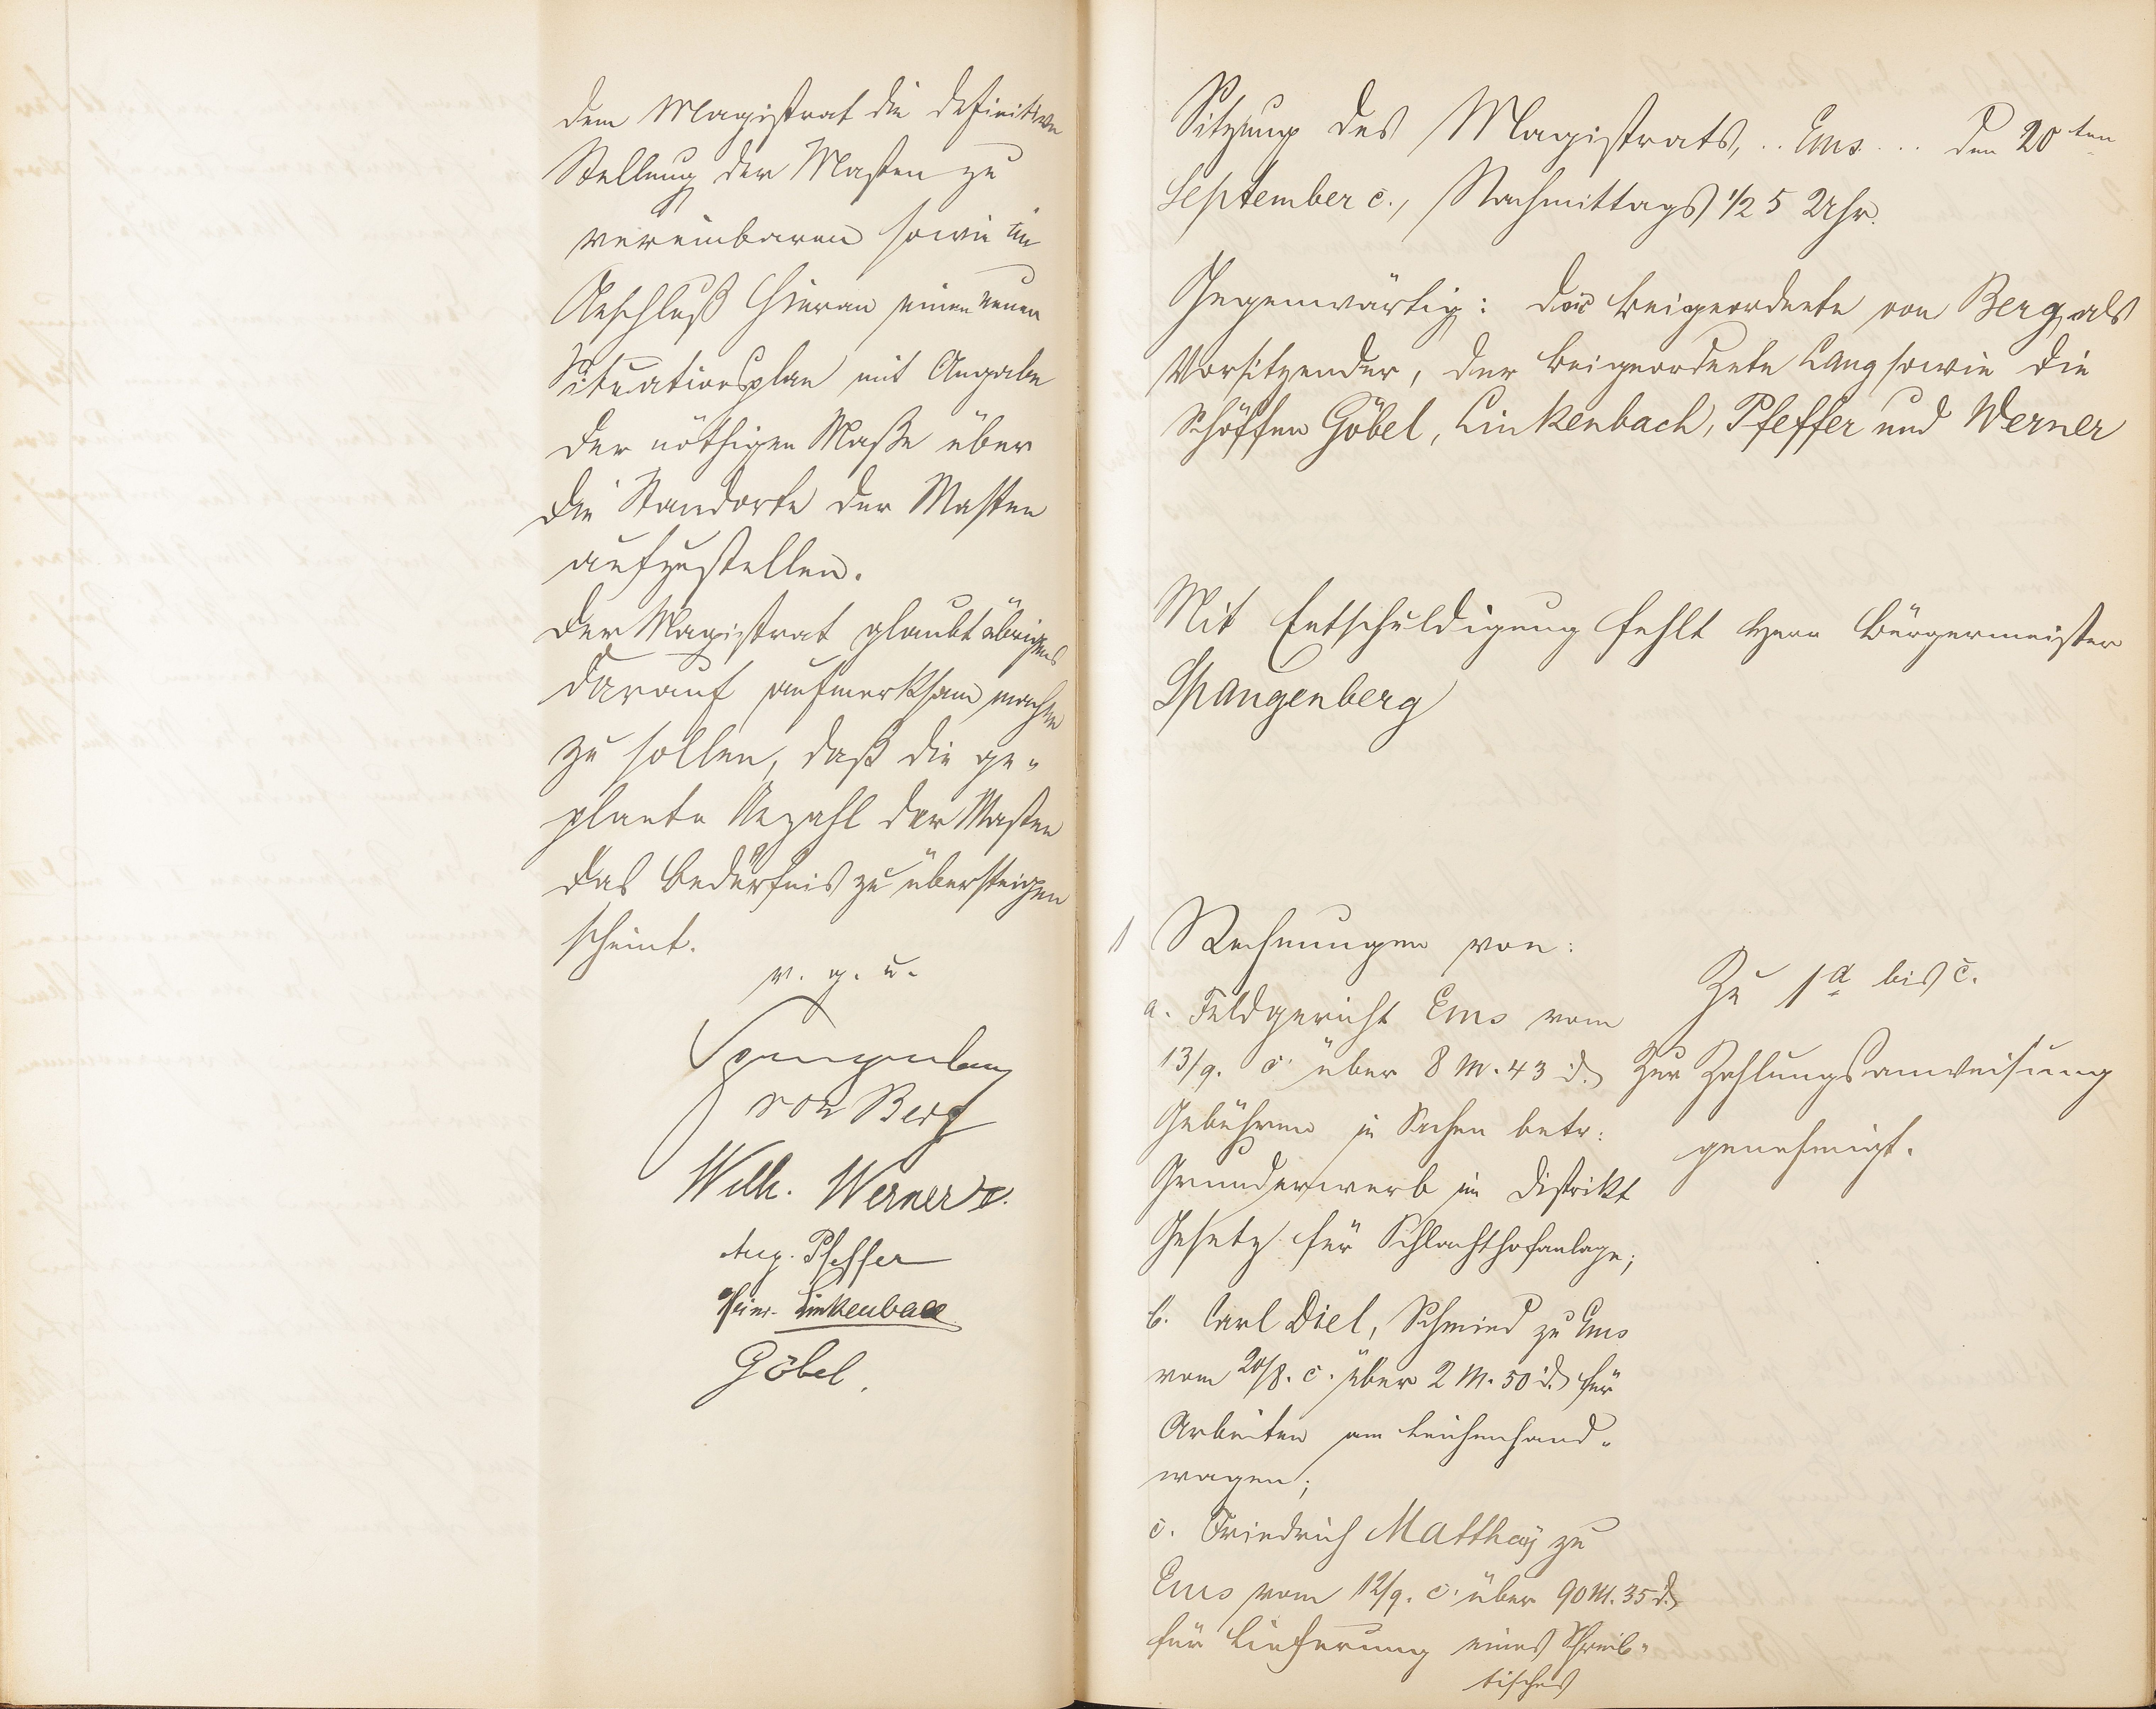 dem Magistrat die definitive
Stellung der Masten zu
vereinbaren sowie im
Anschluß hieran einen neuen
Situationsplan mit Angabe
der nöthigen Maße über
die Standorte der Masten
aufzustellen.
Der Magistrat glaubt übrigens
darauf aufmerksam machen
zu sollen, daß die ge-
plante Anzahl der Masten
das Bedürfnis zu übersteigen
scheint.
v. g. u.
Spangenberg
von Berg
Wilh. Werner
Aug. Pfeffer
Heinr. Linkenbach
Göbel.
Sitzung des Magistrats, .. Ems ... den 20ten
September c., Nachmittags 1/2 5 Uhr.
Gegenwärtig: Der Beigeordnete von Berg als
Vorsitzender, der Beigeordnete Lang sowie die
Schöffen Göbel, Linkenbach, Pfeffer und Werner
Mit Entschuldigung fehlt Herr Bürgermeister
Spangenberg
1 Rechnungen von:
a. Feldgericht Ems vom
13/9. c. über 8 M. 43 d.
Gebühren in Sachen betr:
Grunderwerb im Distrikt
Gesetz für Schlachthofanlage;
b. Carl Diel, Schmied zu Ems
vom 20/8. c. über 2 M. 50 d. für
Arbeiten am Leichenhand-
wagen;
c. Friedrich Matthay zu
Ems vom 12/9. c. über 90 M. 35 d.
für Lieferung eines Schreib-
tisches
Zu 1a bis c.
Zur Zahlungsanweisung
genehmigt.